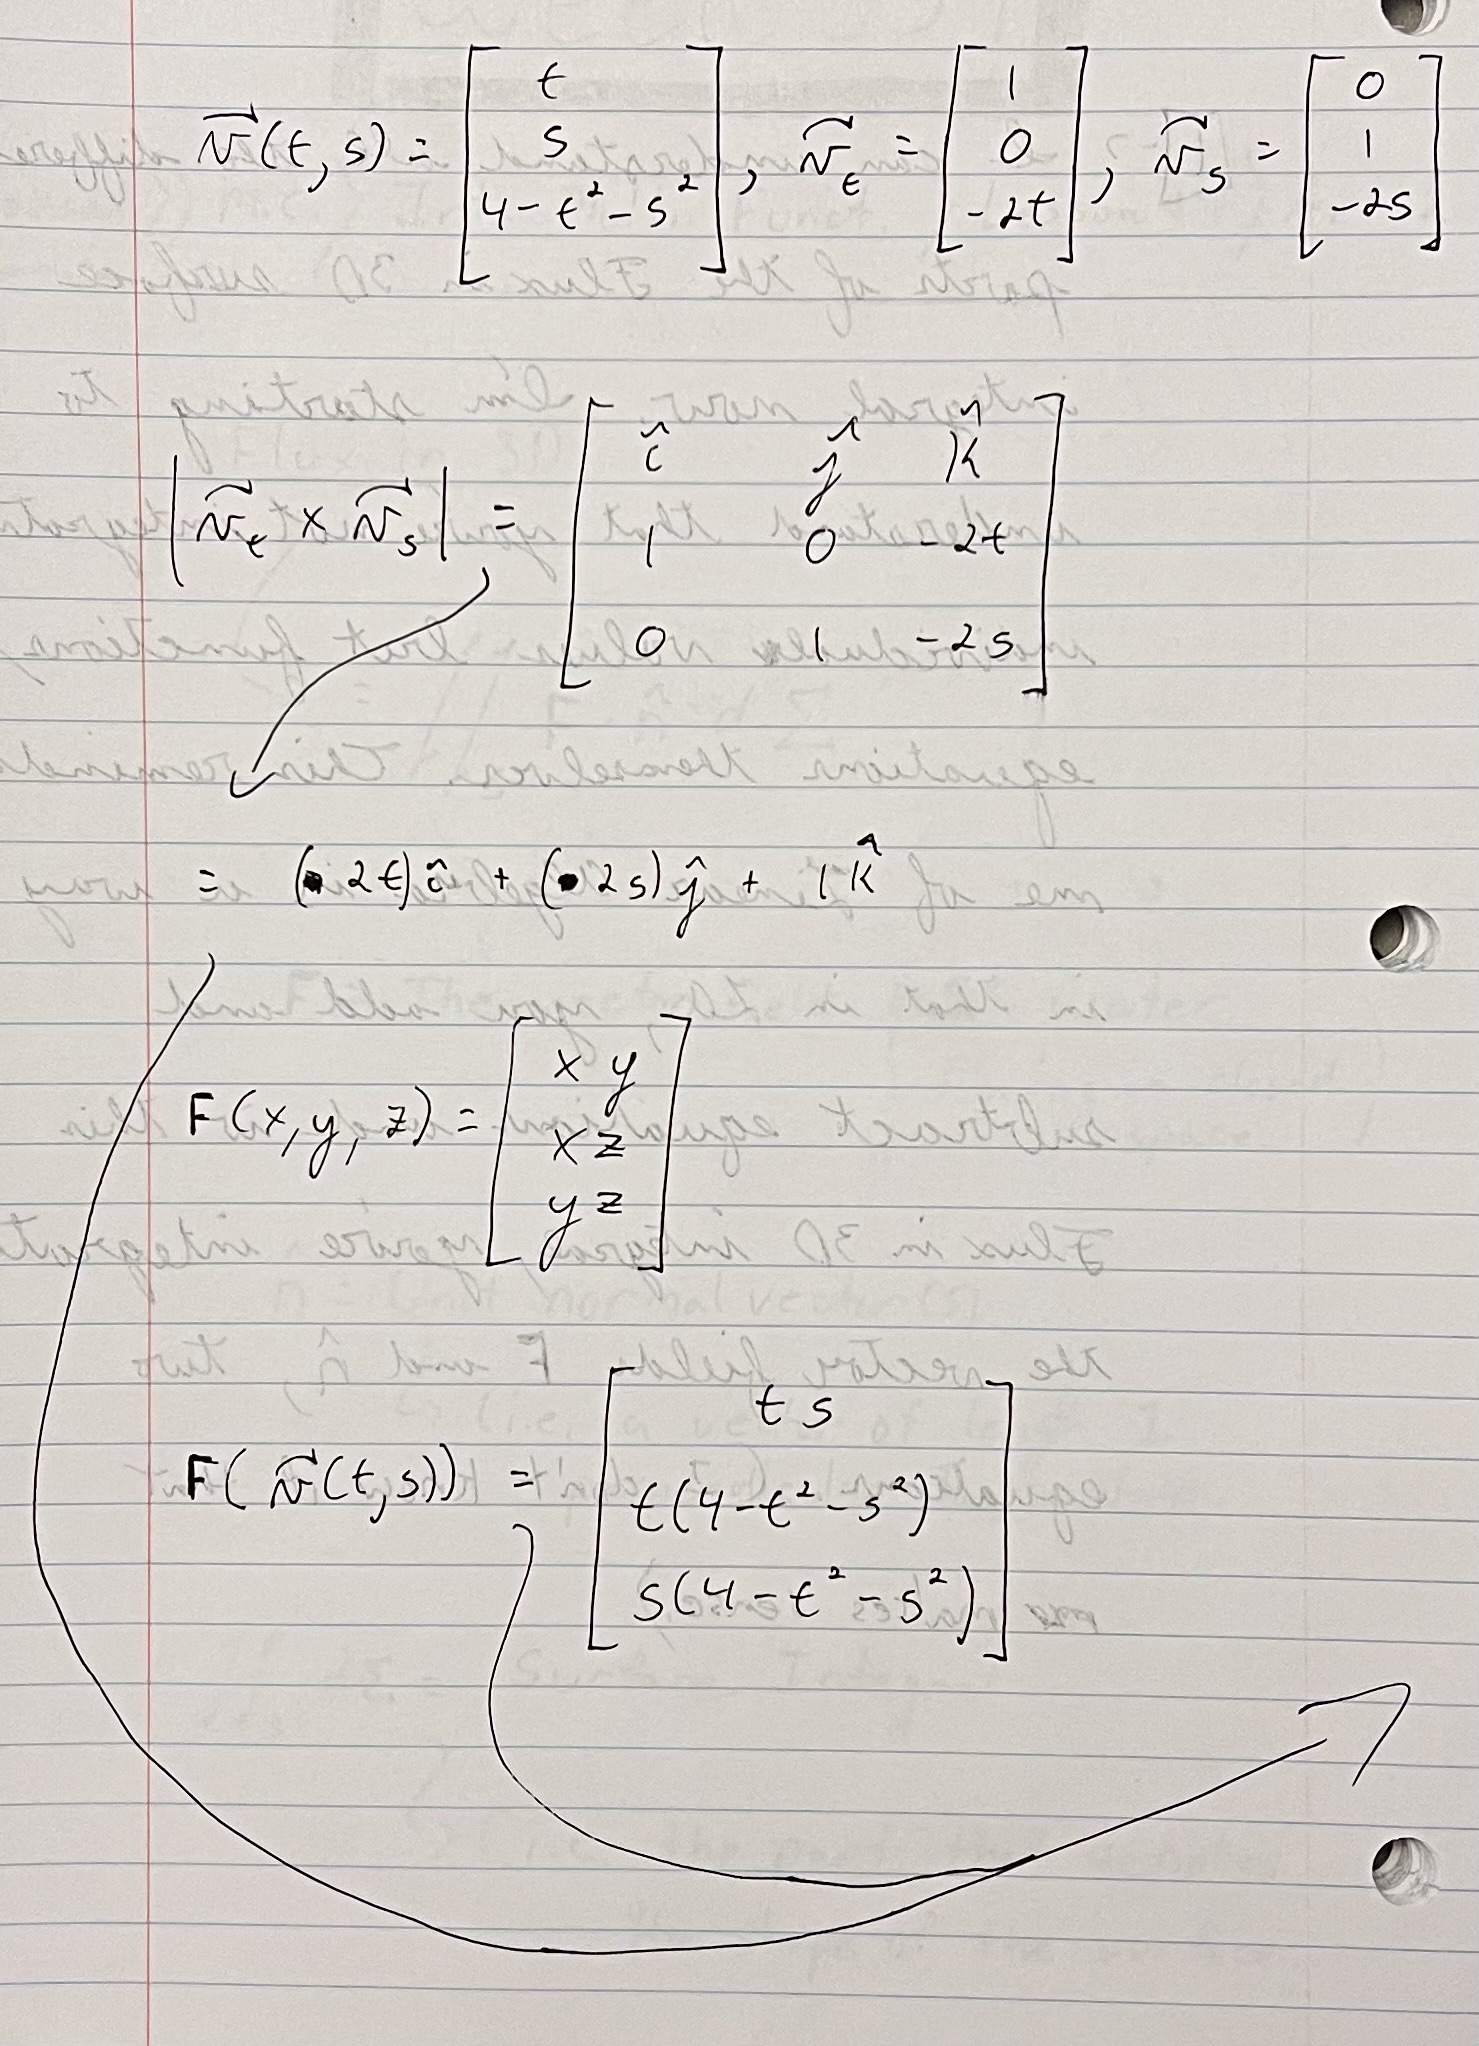 v⃗(t, s) = [ t ; s ; 4 - t² - s² ], v⃗_t = [ 1 ; 0 ; -2t ], v⃗_s = [ 0 ; 1 ; -2s ]
|v⃗_t × v⃗_s| = [ î ĵ k̂ ; 1 0 -2t ; 0 1 -2s ]
= (2t)î + (2s)ĵ + 1k̂
F(x, y, z) = [ xy ; xz ; yz ]
F(v⃗(t,s)) = [ ts ; t(4-t²-s²) ; s(4-t²-s²) ]